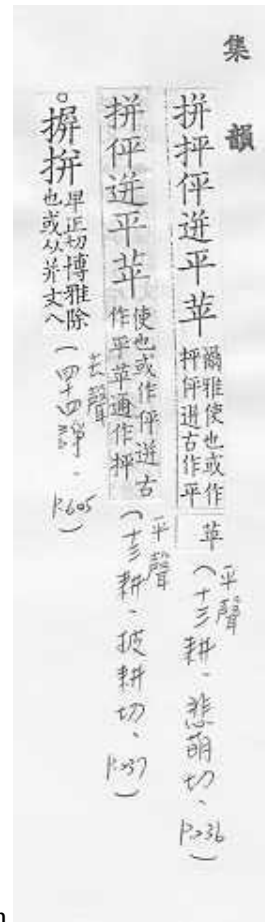 集韻
拼抨伻迸平苹 爾雅使也或作
抨伻迸古作平
苹
平聲
(十三耕、悲萌切、P.236)
拼伻迸平苹 使也或作伻迸古
作平苹通作抨
平聲
(十三耕、披耕切、P.237)
。摒拼 卑正切博雅除
也或从并文八
去聲
(四十四諍、P.605)